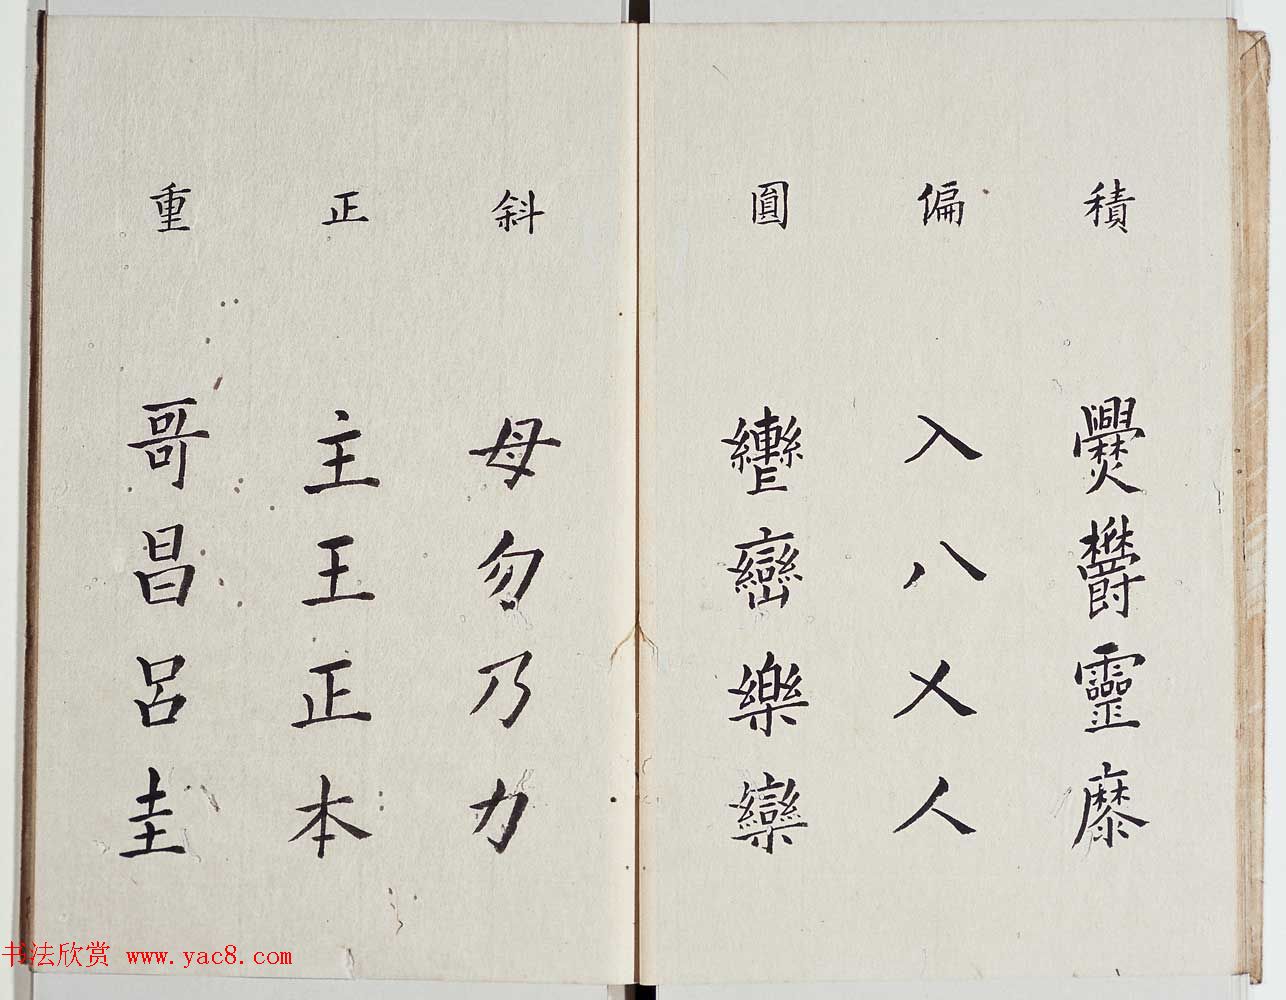 積 爨 鬱 靈
偏 入 八 乂 人
圓 轡 巒 樂 欒
斜 母 勿 乃 力
正 主 王 正 本
重 哥 昌 呂 圭
书法欣赏 www.yac8.com